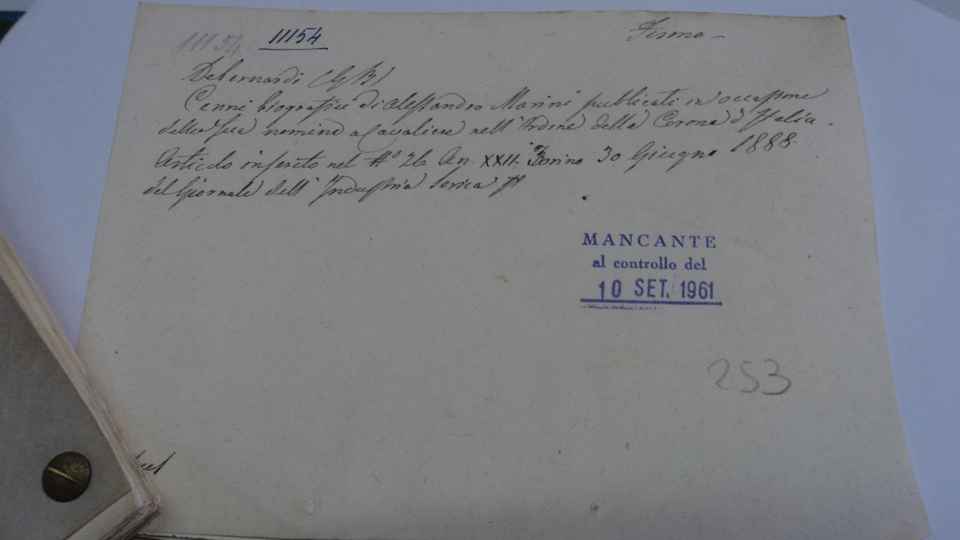 11154 11154
Debernardi (G B)
Cenni biografici di Alessandro Marini publicati in occasione
della sua nomina a Cavaliere nell'Ordine della Corona d'Italia.
Articolo inserito nel N° 26 An. XXII. Torino 30 Giugno 1888
del Giornale dell'Industria Serica
MANCANTE
al controllo del
10 SET. 1961
253